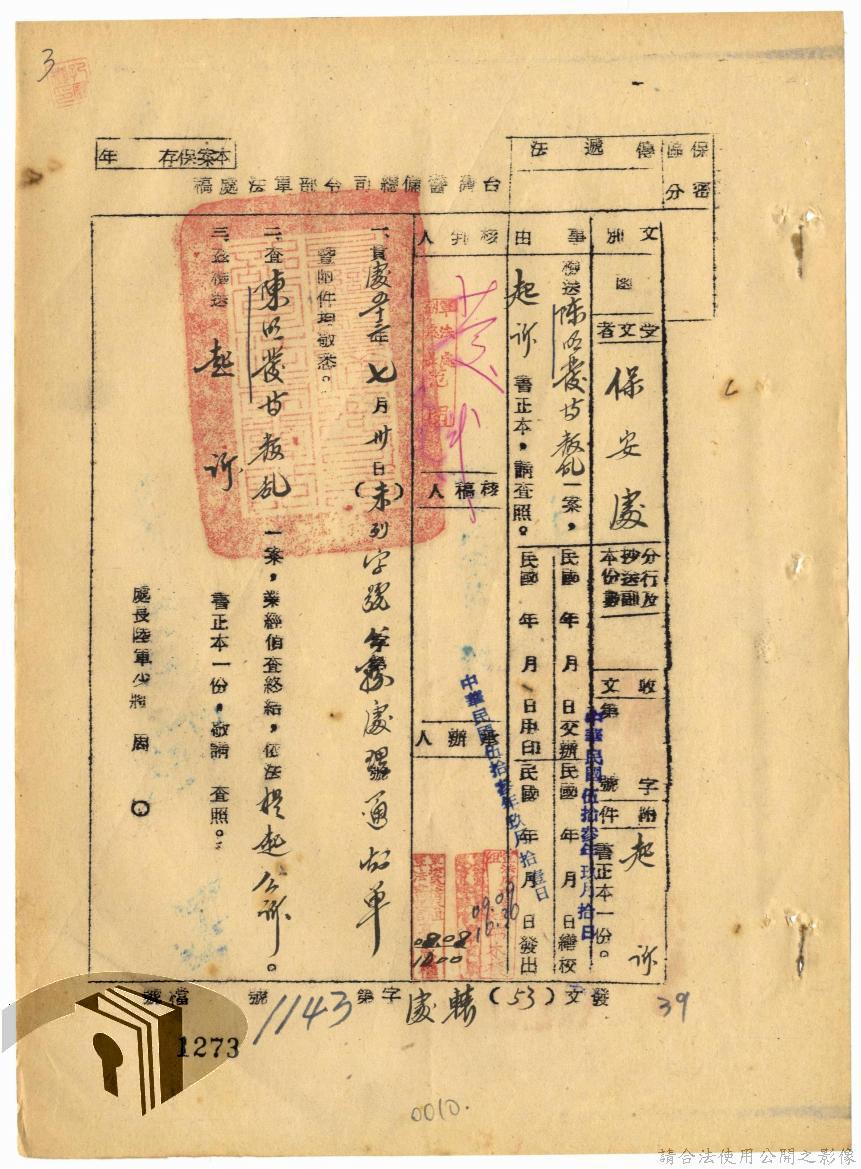 3
保密區分
傳遞法
本案保存 年
台灣警備總司令部軍法處稿
文別
函
受文者
保安處
分行及抄送副本份數
收文 字第 號
附件
起訴
書正本一份。
事由
檢送陳明發等叛乱一案，
起訴書正本，請查照。
民國 年 月 日交辦
民國 年 月 日繕校
民國 年 月 日用印
民國 年 月 日發出
中華民國伍拾叁年玖月拾日
中華民國伍拾叁年玖月拾壹日
核判人
核稿人
承辦人
09.09
1630
09.09
1000
一、貴處五十三年七月卅日（未列字號）案處理通知单
暨附件均敬悉。
二、查陳明發等叛乱一案，業經偵查終結，依法提起公訴。
三、茲檢送起訴書正本一份，敬請 查照。
處長陸軍少將 周 〇
發文（53）轅處字第1143號
檔號
1273
39
0010.
請合法使用公開之影像